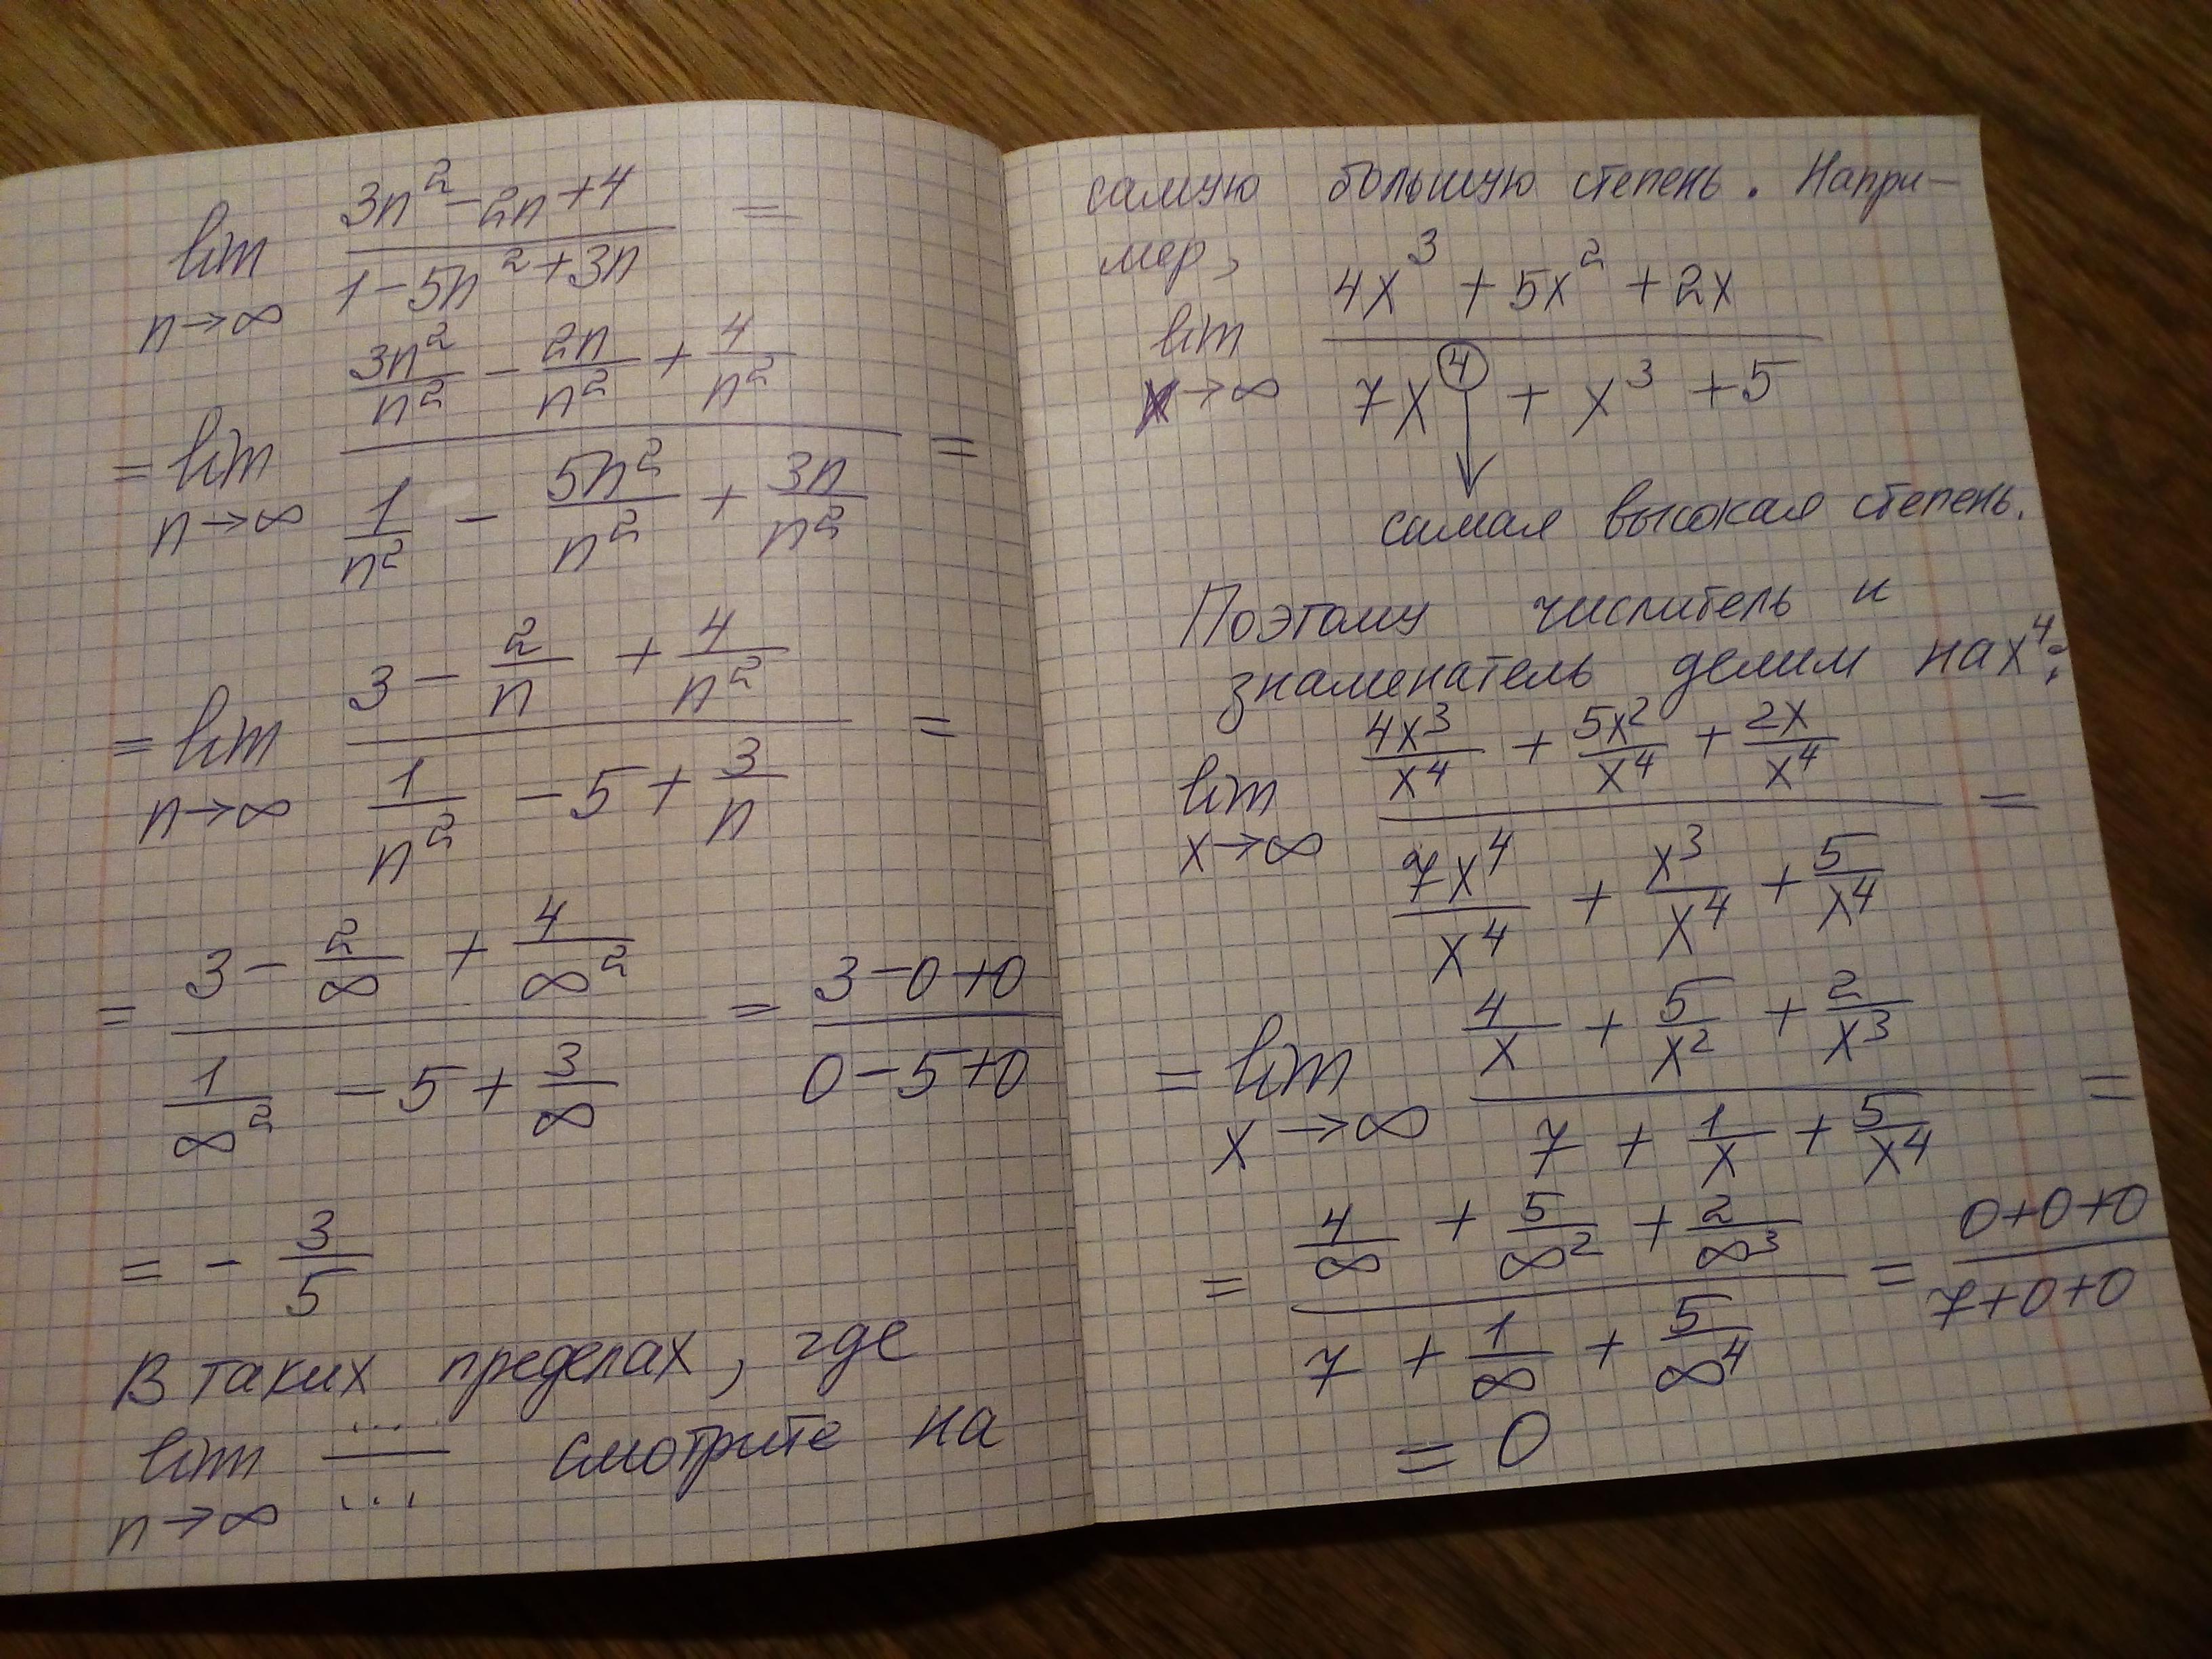 lim n→∞ (3n² - 2n + 4)/(1 - 5n² + 3n) =
= lim n→∞ (3n²/n² - 2n/n² + 4/n²)/(1/n² - 5n²/n² + 3n/n²) =
= lim n→∞ (3 - 2/n + 4/n²)/(1/n² - 5 + 3/n) =
= (3 - 2/∞ + 4/∞²)/(1/∞² - 5 + 3/∞) = (3 - 0 + 0)/(0 - 5 + 0)
= - 3/5
В таких пределах, где
lim n→∞ .../... смотрите на
самую большую степень. Напри-
мер,
lim x→∞ (4x³ + 5x² + 2x)/(7x⁴ + x³ + 5)
самая высокая степень.
Поэтому числитель и
знаменатель делим на x⁴:
lim x→∞ (4x³/x⁴ + 5x²/x⁴ + 2x/x⁴)/(7x⁴/x⁴ + x³/x⁴ + 5/x⁴) =
= lim x→∞ (4/x + 5/x² + 2/x³)/(7 + 1/x + 5/x⁴) =
= (4/∞ + 5/∞² + 2/∞³)/(7 + 1/∞ + 5/∞⁴) = (0+0+0)/(7+0+0)
= 0